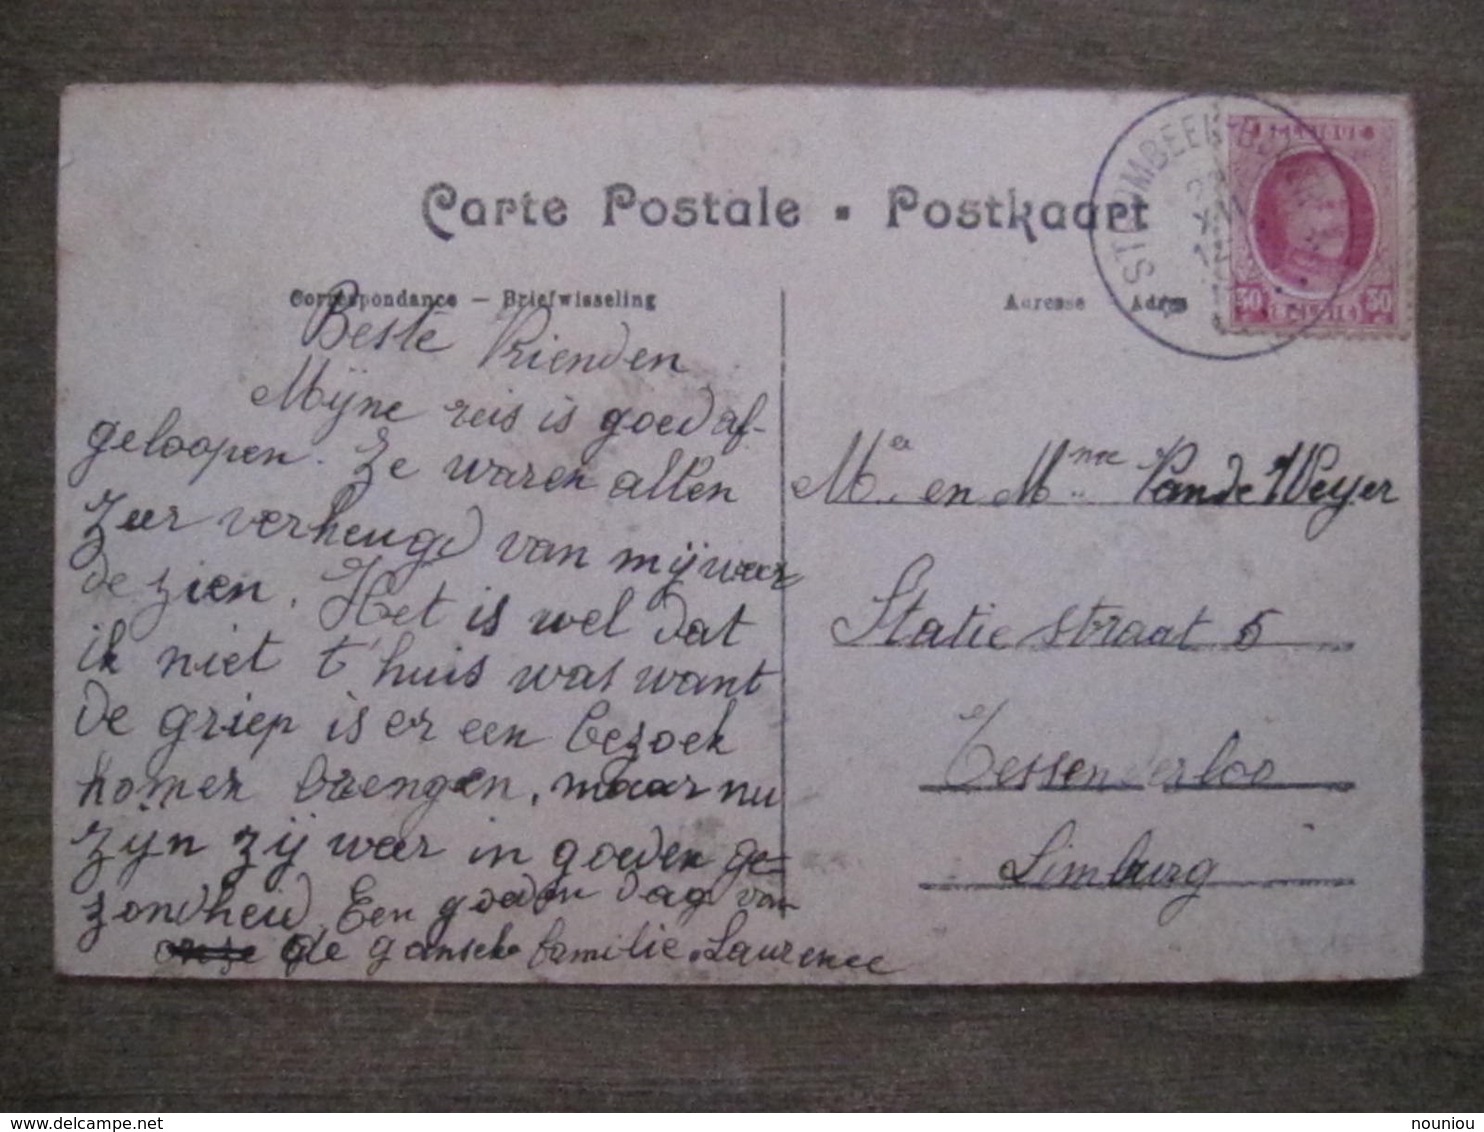 Carte Postale - Postkaart
Correspondance — Briefwisseling
Adresse - Adres
STROMBEEK-BE
30 30
Beste Vrienden
Mijne reis is goed af-
geloopen. Ze waren allen
zeer verheugd van mij weer
de zien. Het is wel dat
ik niet t'huis was want
de griep is er een bezoek
komen brengen, maar nu
zijn zij weer in goeden ge-
zondheid. Een goeden dag van
de gansche familie. Laurence
Mr. en Mme Van de Weyer
Statie straat 5
Tessenderloo
Limburg
nouniou